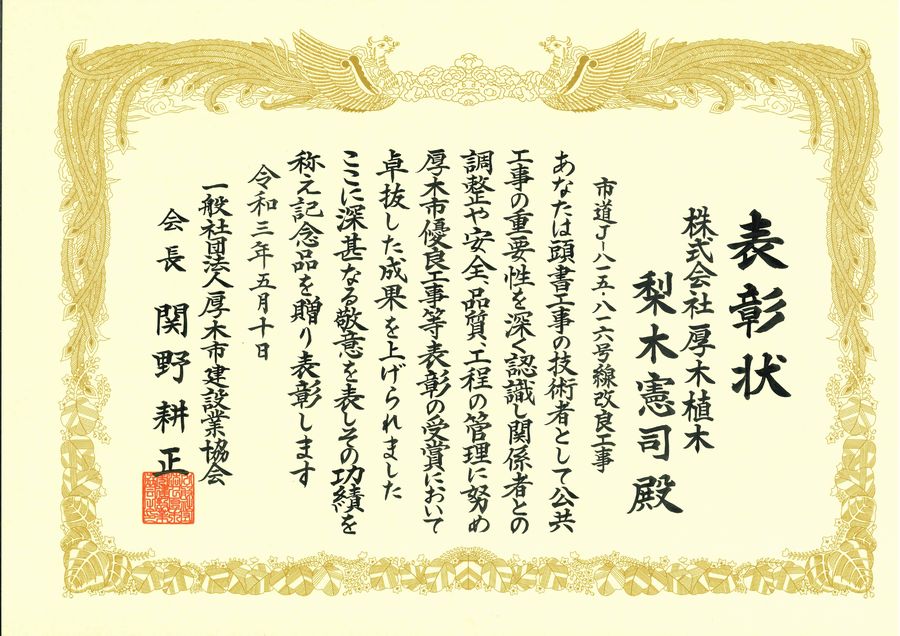 表彰状
株式会社厚木植木
梨木憲司殿
市道J-八一五・八一六号線改良工事
あなたは頭書工事の技術者として公共
工事の重要性を深く認識し関係者との
調整や安全、品質、工程の管理に努め
厚木市優良工事等表彰の受賞において
卓抜した成果を上げられました
ここに深甚なる敬意を表しその功績を
称え記念品を贈り表彰します
令和三年五月十日
一般社団法人厚木市建設業協会
会長 関野耕正